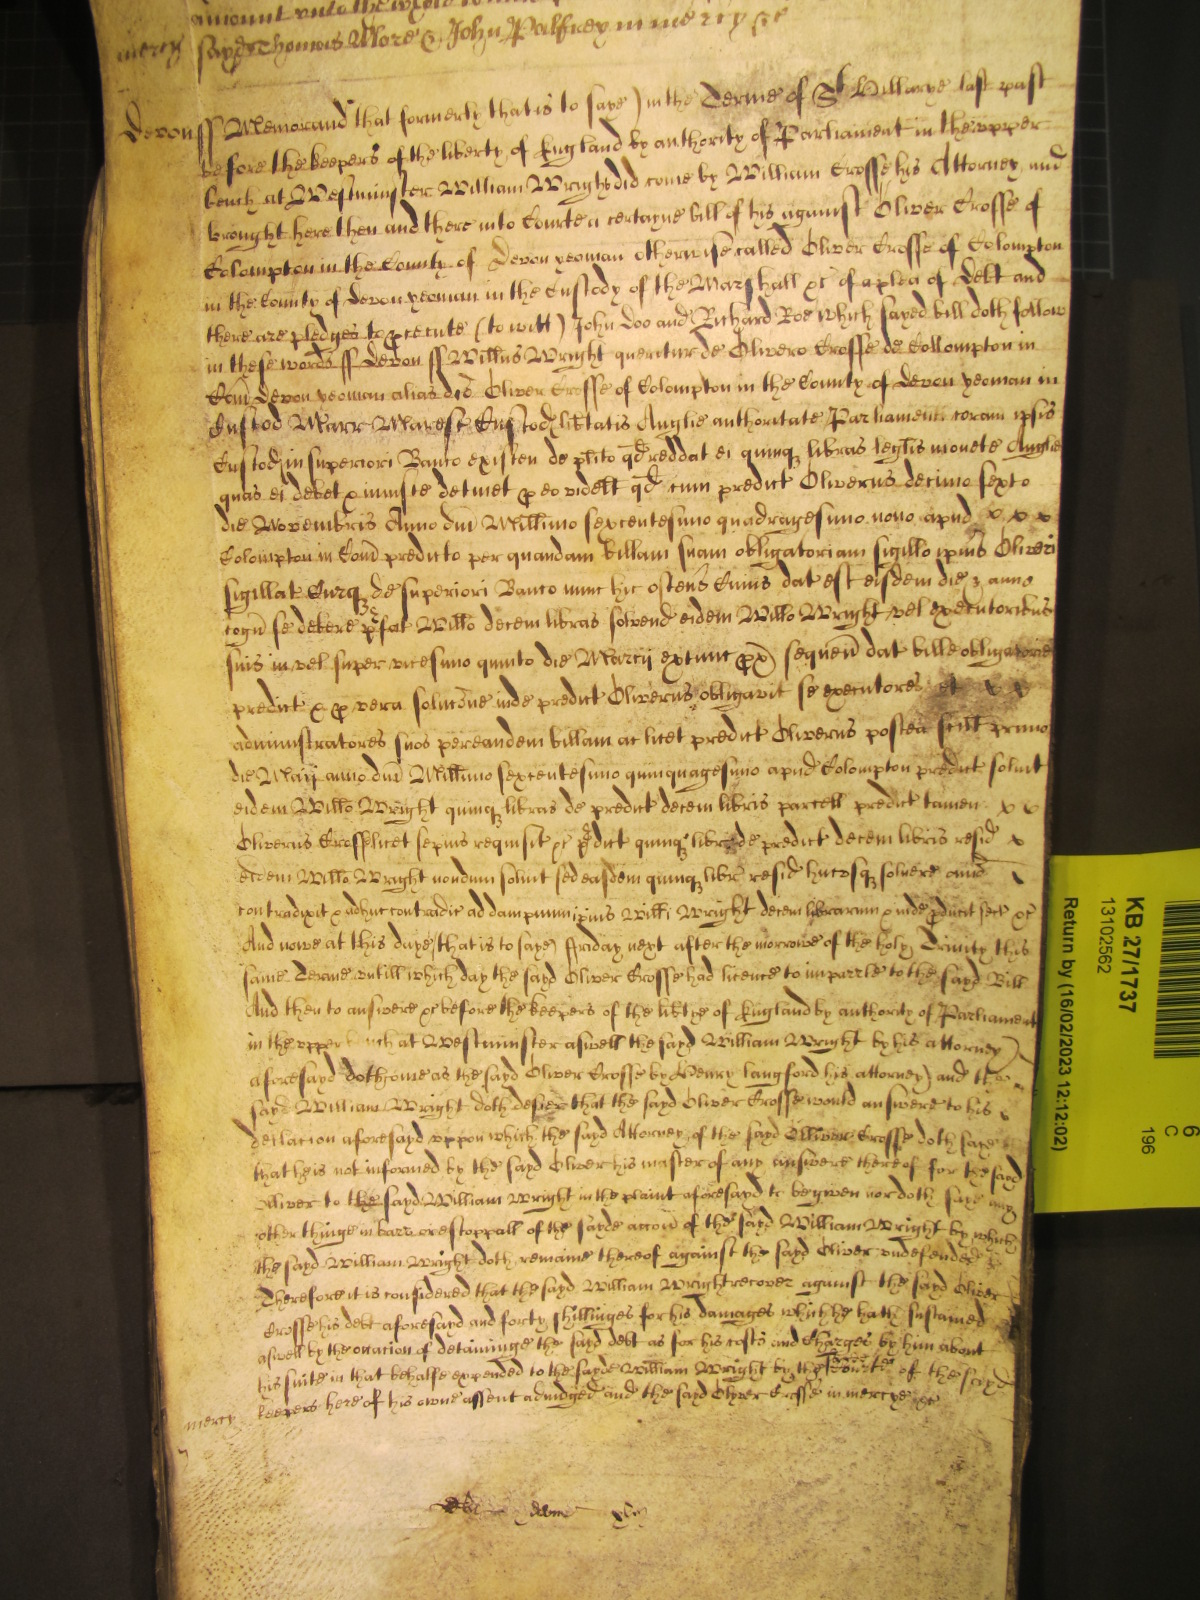 amount unto the
mercy sayd Thomas More & John Palfrey in mercy &c
Devon ss Memorand that formerly that is to saye) in the Terme of St Hillarye last past
before the keepers of the liberty of England by authority of Parliament in the upper
bench at Westminster William Wright did come by William Crosse his Attorney and
brought here then and there into Courte a certayne bill of his against Oliver Crosse of
Colompton in the County of Devon yeoman otherwise called Oliver Crosse of Colompton
in the County of Devon yeoman in the Custody of the Marshall &c of a plea of Debt and
there are pledges to psecute (to witt) John Doo and Richard Roe which sayed bill doth follow
in these words ss Devon ss Willus Wright queritur de Olivero Crosse de Collompton in
Com Devon yeoman alias dcs Oliver Crosse of Colompton in the County of Devon yeoman in
Custod Marr Maresc Custod libtatis Anglie authoritate Parliamenti coram ipsis
Custod in superiori Banco existen de plito qd reddat ei quinq libras leglis monete Anglie
quas ei debet & iniuste detinet p eo videlt qd cum predict Oliverus decimo sexto
die Novembris Anno dni Millimo sexcentesimo quadragesimo nono apud x x x
Colompton in Com predicto per quandam billam suam obligatoriam sigillo ipius Oliveri
sigillat Curq de superiori Banco nunc hic ostens Cuius dat est eisdem die & anno
cogn se debere pfat Willo decem libras solvend eidem Willo Wright vel executoribus
suis in vel super vicesimo quinto die Marcij extunc px) sequen dat bille obligatorie
predict & p vera soluc̄one inde predict Oliverus obligavit se executores et x x
administratores suos per eandem billam ac licet predict Oliverus postea scilt primo
die Maij anno dni Millimo sexcentesimo quinquagesimo apud Colompton predict soluit
eidem Willo Wright quinq libras de predict decem libris parcell predict tamen x x
Oliverus Crosse licet sepius requisit &c pdict quinq libr de predict decem libris resid x
eidem Willo Wright nondum soluit sed easdem quinq libr resid hucusq solvere omnio
contradixit & adhuc contradic ad dampnum ipius Willi Wright decem librarum & inde pducit sect &c
And nowe at this daye (that is to saye) ffriday next after the morrowe of the holy Trinity this
same Terme untill which day the sayd Oliver Crosse had licence to imparle to the sayd Bill
And then to answere &c before the keepers of the libtye of England by authority of Parliament
in the upper at Westminster aswell the sayd William Wright by his attorney)
aforesayd doth come as the sayd Oliver Crosse by Henry Langford his attorney) and the
sayd William Wright doth desier that the sayd Oliver Crosse would answere to his x
declacion aforesayd uppon which the sayd Attorney of the sayd Olliver Crosse doth saye
that he is not informed by the sayd Oliver his master of any answere thereof for the sayd
Olliver to the sayd William Wright in the plaint aforesayd to be given nor doth saye any
other thinge in barr or estoppall of the sayde accon of the sayd William Wright by which
the sayd William Wright doth remaine thereof against the sayd Oliver undefended
Therefore it is considered that the sayd William Wright recover against the sayd Oliver
Crosse his debt aforesayd and forty shillinges for his damages which he hath sustained
aswell by the occacion of detaininge the sayd debt as for his costs and Charges by him about
his suite in that behalfe expended to the sayde William Wright by the Courte of the sayd
mercy keepers here of his owne assent adiudged and the sayd Oliver Crosse in mercye &c
KB 27/1737
13102562
Return by (16/02/2023 12:12:02)
6
C
196